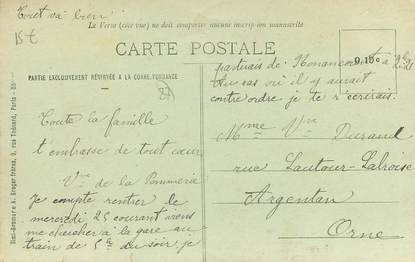 Tout va bien
Le Verso (côté vue) ne doit comporter aucune inscription manuscrite
15 €
CARTE POSTALE
PARTIE EXCLUSIVEMENT RÉSERVÉE A LA CORRESPONDANCE
27
Toute la famille
t'embrasse de tout cœur
Vve de la Pommerie
Je compte rentrer le
mercredi 25 courant viens
me chercher à la gare au
train de 5h du soir, je
partirais de Nonancourt à 2h
Au cas où il y aurait
contre ordre je te l'écrirais.
Mme Vve Durand
rue Lautour-Labroise
Argentan
Orne